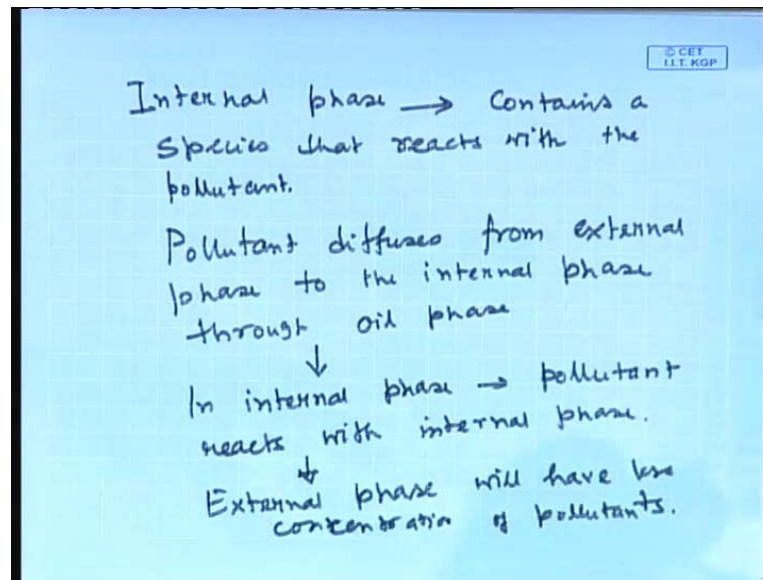 © CET
I.I.T. KGP
Internal phase → Contains a
species that reacts with the
pollutant.
Pollutant diffuses from external
phase to the internal phase
through oil phase
↓
In internal phase → pollutant
reacts with internal phase.
↓
External phase will have less
concentration of pollutants.